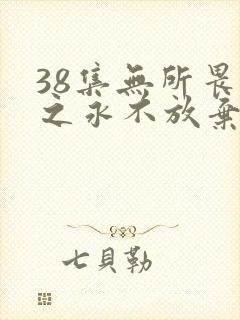 38集無所畏
之永不放棄
七貝勒